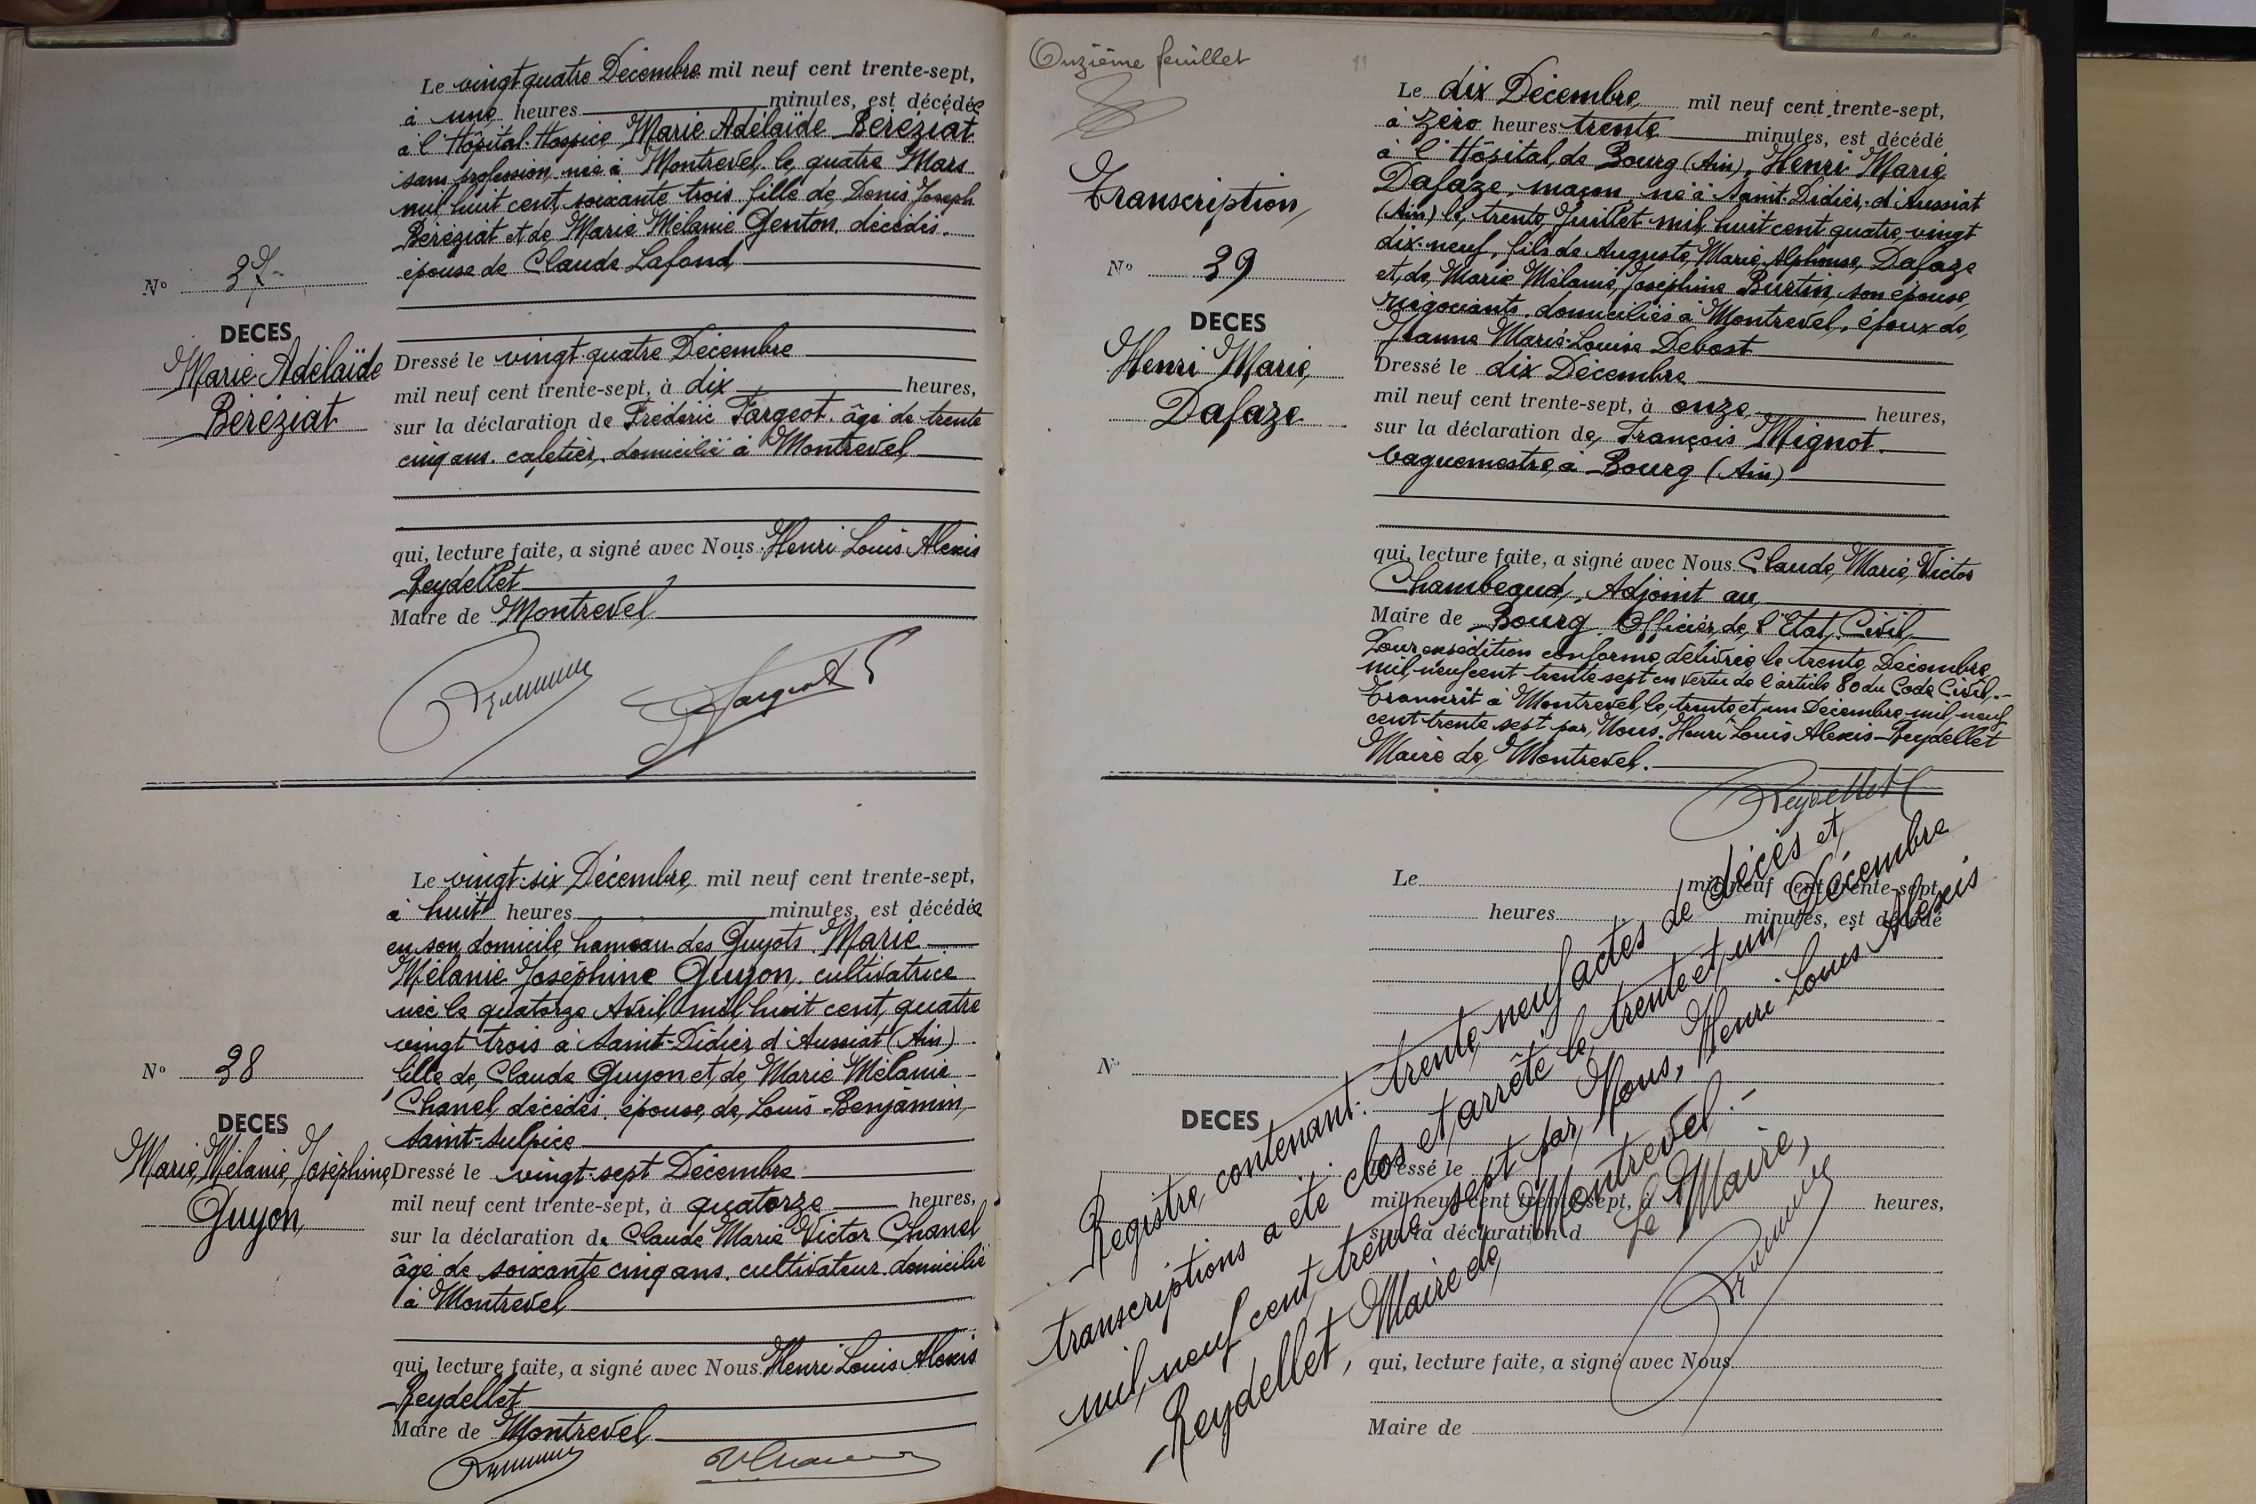 Le vingt quatre Décembre mil neuf cent trente-sept,
à une heures minutes, est décédée
à l'Hôpital-Hospice Marie Adélaïde Béréziat
sans profession, née à Montrevel, le quatre Mars
mil huit cent soixante trois fille de Denis Joseph
Béréziat et de Marie Mélanie Genton décédés.
épouse de Claude Lafond
No 37
DECES
Marie Adélaïde
Béréziat
Dressé le vingt quatre Décembre
mil neuf cent trente-sept, à dix heures,
sur la déclaration de Frédéric Fargeot. âgé de trente
cinq ans. cafetier, domicilié à Montrevel
qui, lecture faite, a signé avec Nous Henri Louis Alexis
Reydellet
Maire de Montrevel
Fargeot
Le vingt-six Décembre mil neuf cent trente-sept,
à huit heures minutes, est décédée
en son domicile hameau des Guyots Marie
Mélanie Joséphine Guyon, cultivatrice
née le quatorze Avril mil huit cent quatre
vingt trois à Saint-Didier d'Aussiat (Ain).
fille de Claude Guyon et de Marie Mélanie
Chanel décédés. épouse de Louis-Benjamin
Saint-Sulpice
No 38
DECES
Marie Mélanie Joséphine
Guyon
Dressé le vingt-sept Décembre
mil neuf cent trente-sept, à quatorze heures,
sur la déclaration de Claude Marie Victor Chanel
âgé de soixante cinq ans. cultivateur domicilié
à Montrevel
qui, lecture faite, a signé avec Nous Henri Louis Alexis
Reydellet
Maire de Montrevel
Onzième feuillet
11
Transcription
Le dix Décembre mil neuf cent trente-sept,
à zéro heures trente minutes, est décédé
à l'Hôpital de Bourg (Ain), Henri Marie
Dafaze, maçon né à Saint-Didier-d'Aussiat
(Ain) le trente Juillet mil huit cent quatre vingt
dix-neuf, fils de Auguste Marie Alphonse Dafaze
et de Marie Mélanie Joséphine Burtin, son épouse,
négociants, domiciliés à Montrevel, époux de
Jeanne Marie-Louise Debost
No 39
DECES
Henri Marie
Dafaze
Dressé le dix Décembre
mil neuf cent trente-sept, à onze heures,
sur la déclaration de François Mignot.
vaguemestre à Bourg (Ain)
qui, lecture faite, a signé avec Nous Claude Marie Victor
Chambeaud, Adjoint au
Maire de Bourg Officier de l'Etat Civil
Pour expédition conforme délivrée le trente Décembre
mil neuf cent trente sept en vertu de l'article 80 du Code Civil.-
Transcrit à Montrevel, le trente et un Décembre mil neuf
cent trente sept par Nous. Henri Louis Alexis Reydellet
Maire de Montrevel.
Reydellet
Le mil neuf cent trente-sept,
heures minutes, est décédé
No
DECES
Dressé le
mil neuf cent trente-sept, à heures,
sur la déclaration d
qui, lecture faite, a signé avec Nous
Maire de
Registre contenant: trente neuf actes de décès et
transcriptions a été clos et arrêté le trente et un Décembre
mil neuf cent trente sept par Nous, Henri Louis Alexis
Reydellet, Maire de Montrevel.-
Le Maire,